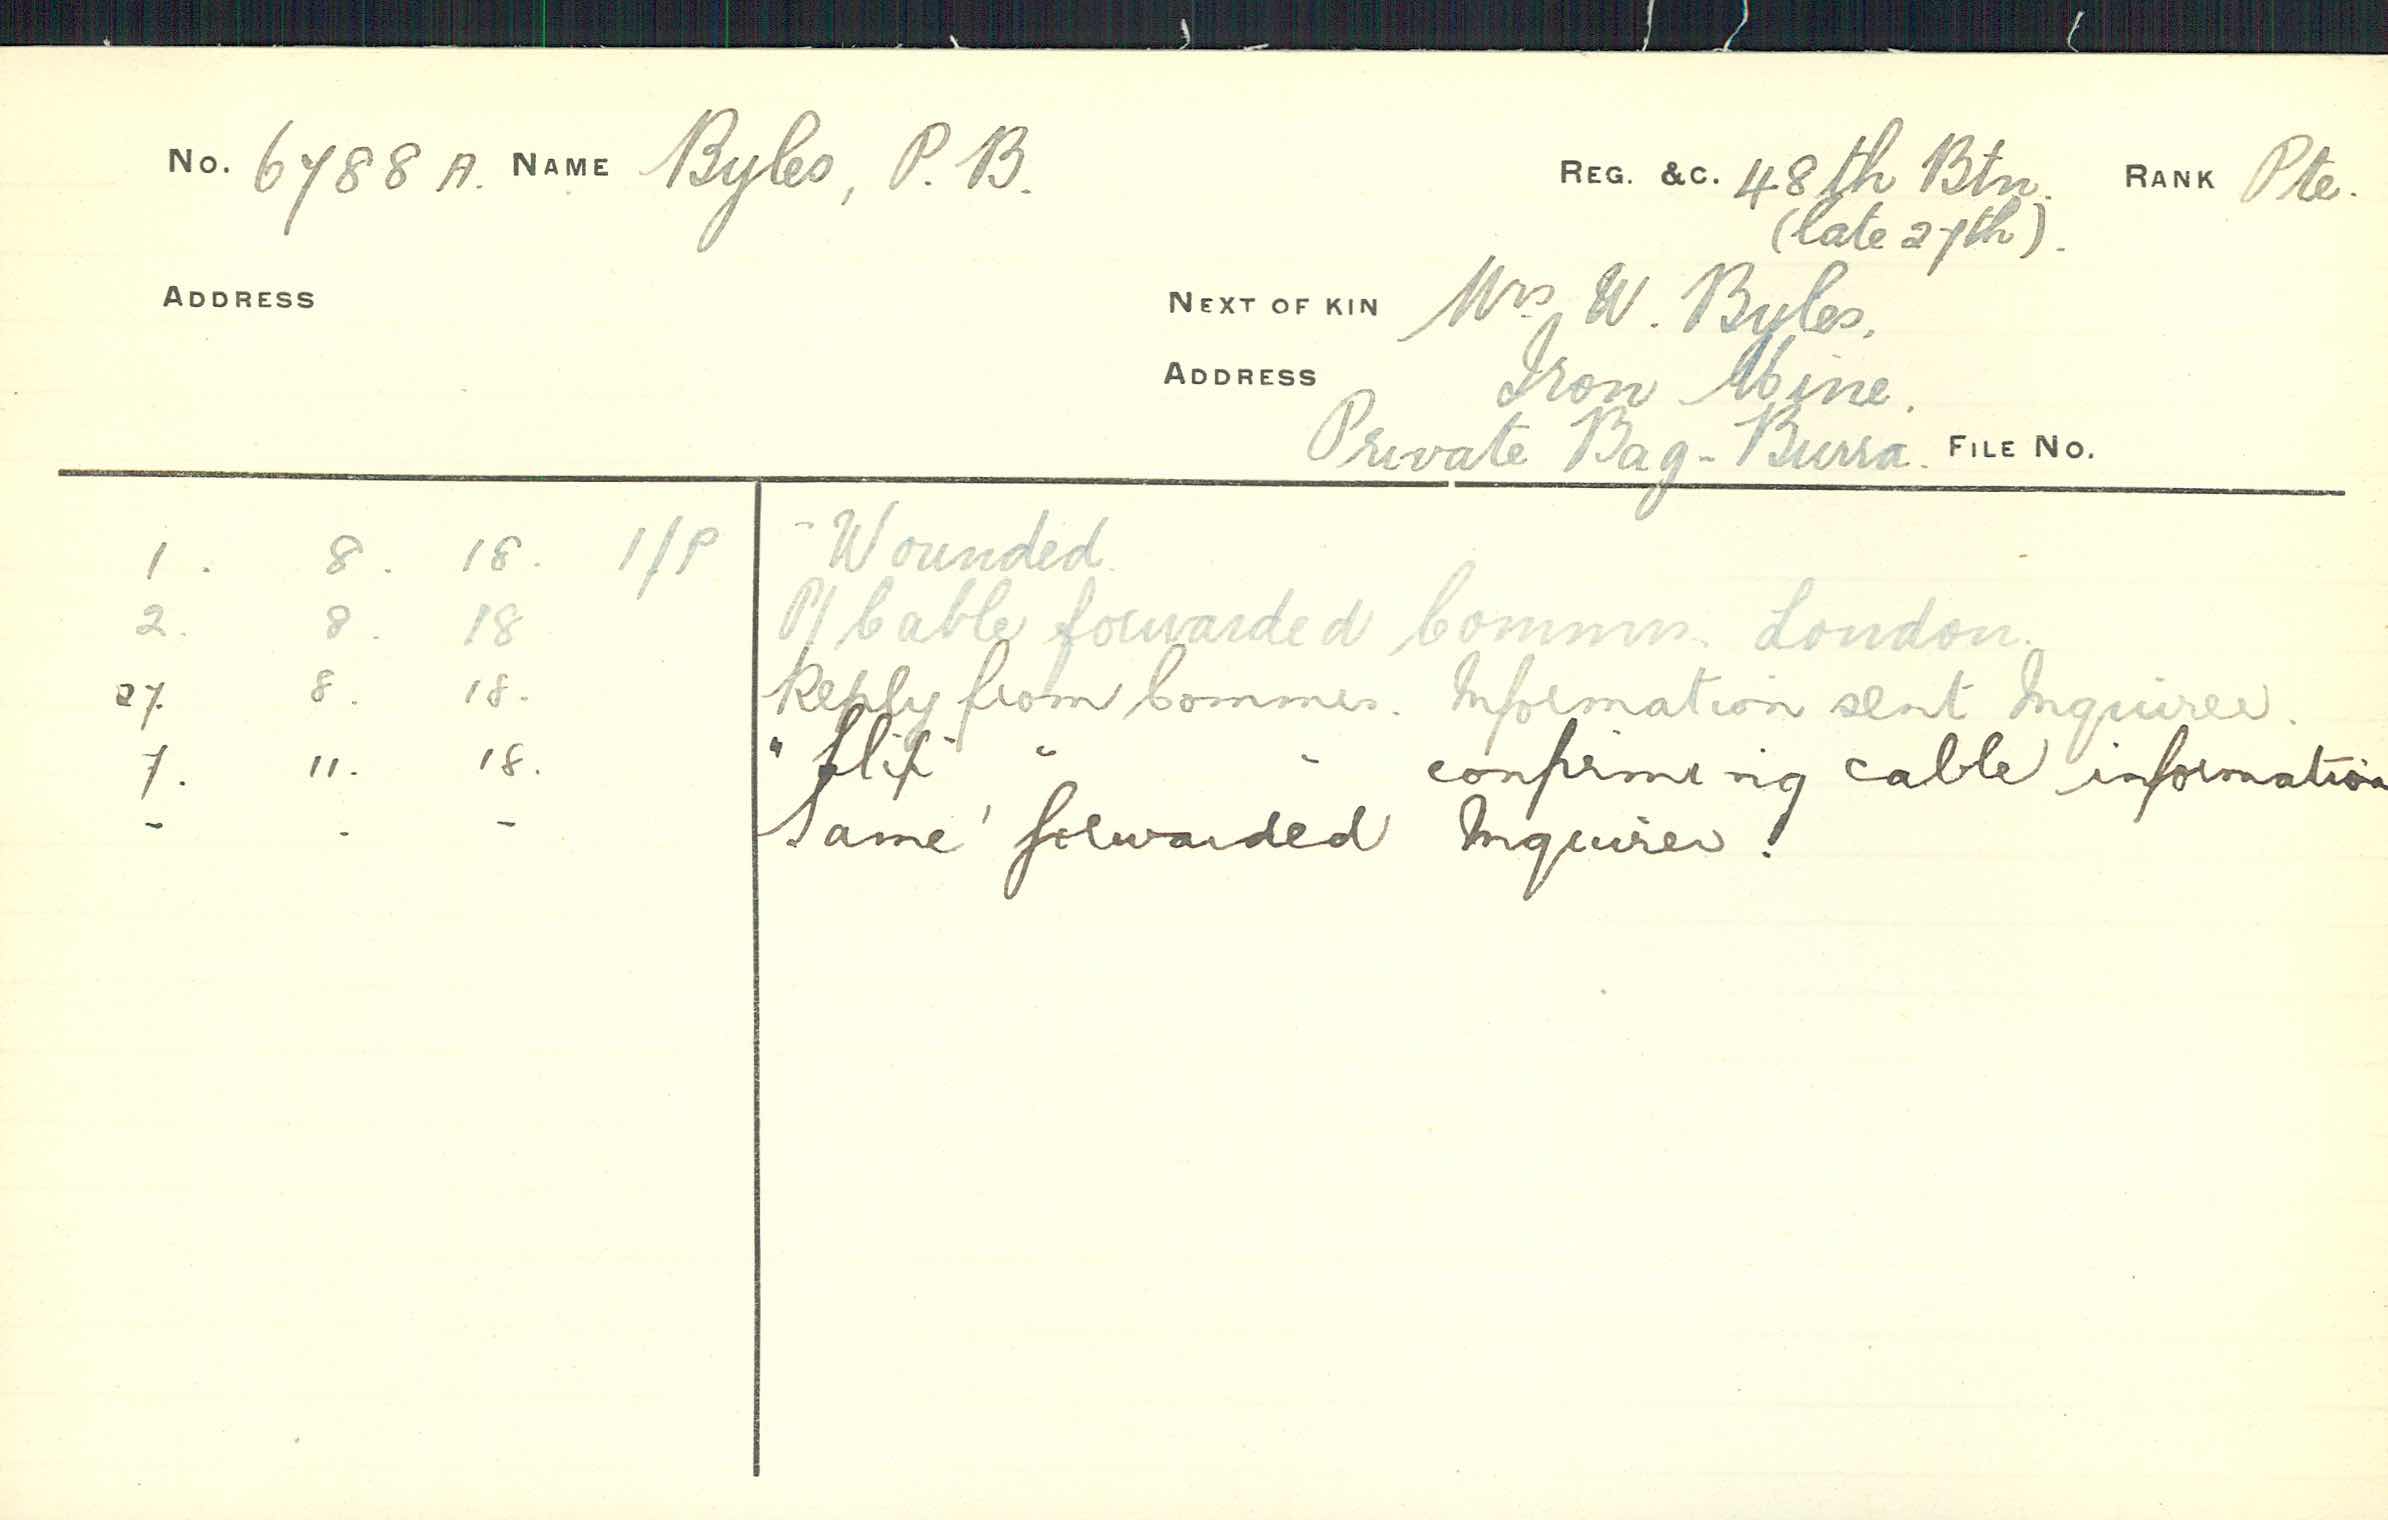 No. 6788 A. NAME Byles, P. B. REG. &C. 48th Btn. RANK Pte.
(late 27th).
ADDRESS NEXT OF KIN Mrs W. Byles,
ADDRESS Iron Mine.
Private Bag - Burra. FILE No.
1. 8. 18. I/P - Wounded.
2. 8. 18 P/ Cable forwarded Commrs. London.
27. 8. 18. Reply from Commrs. Information sent Inquirer.
7. 11. 18. " Slip " " confirming cable information
- . - Same forwarded Inquirer.